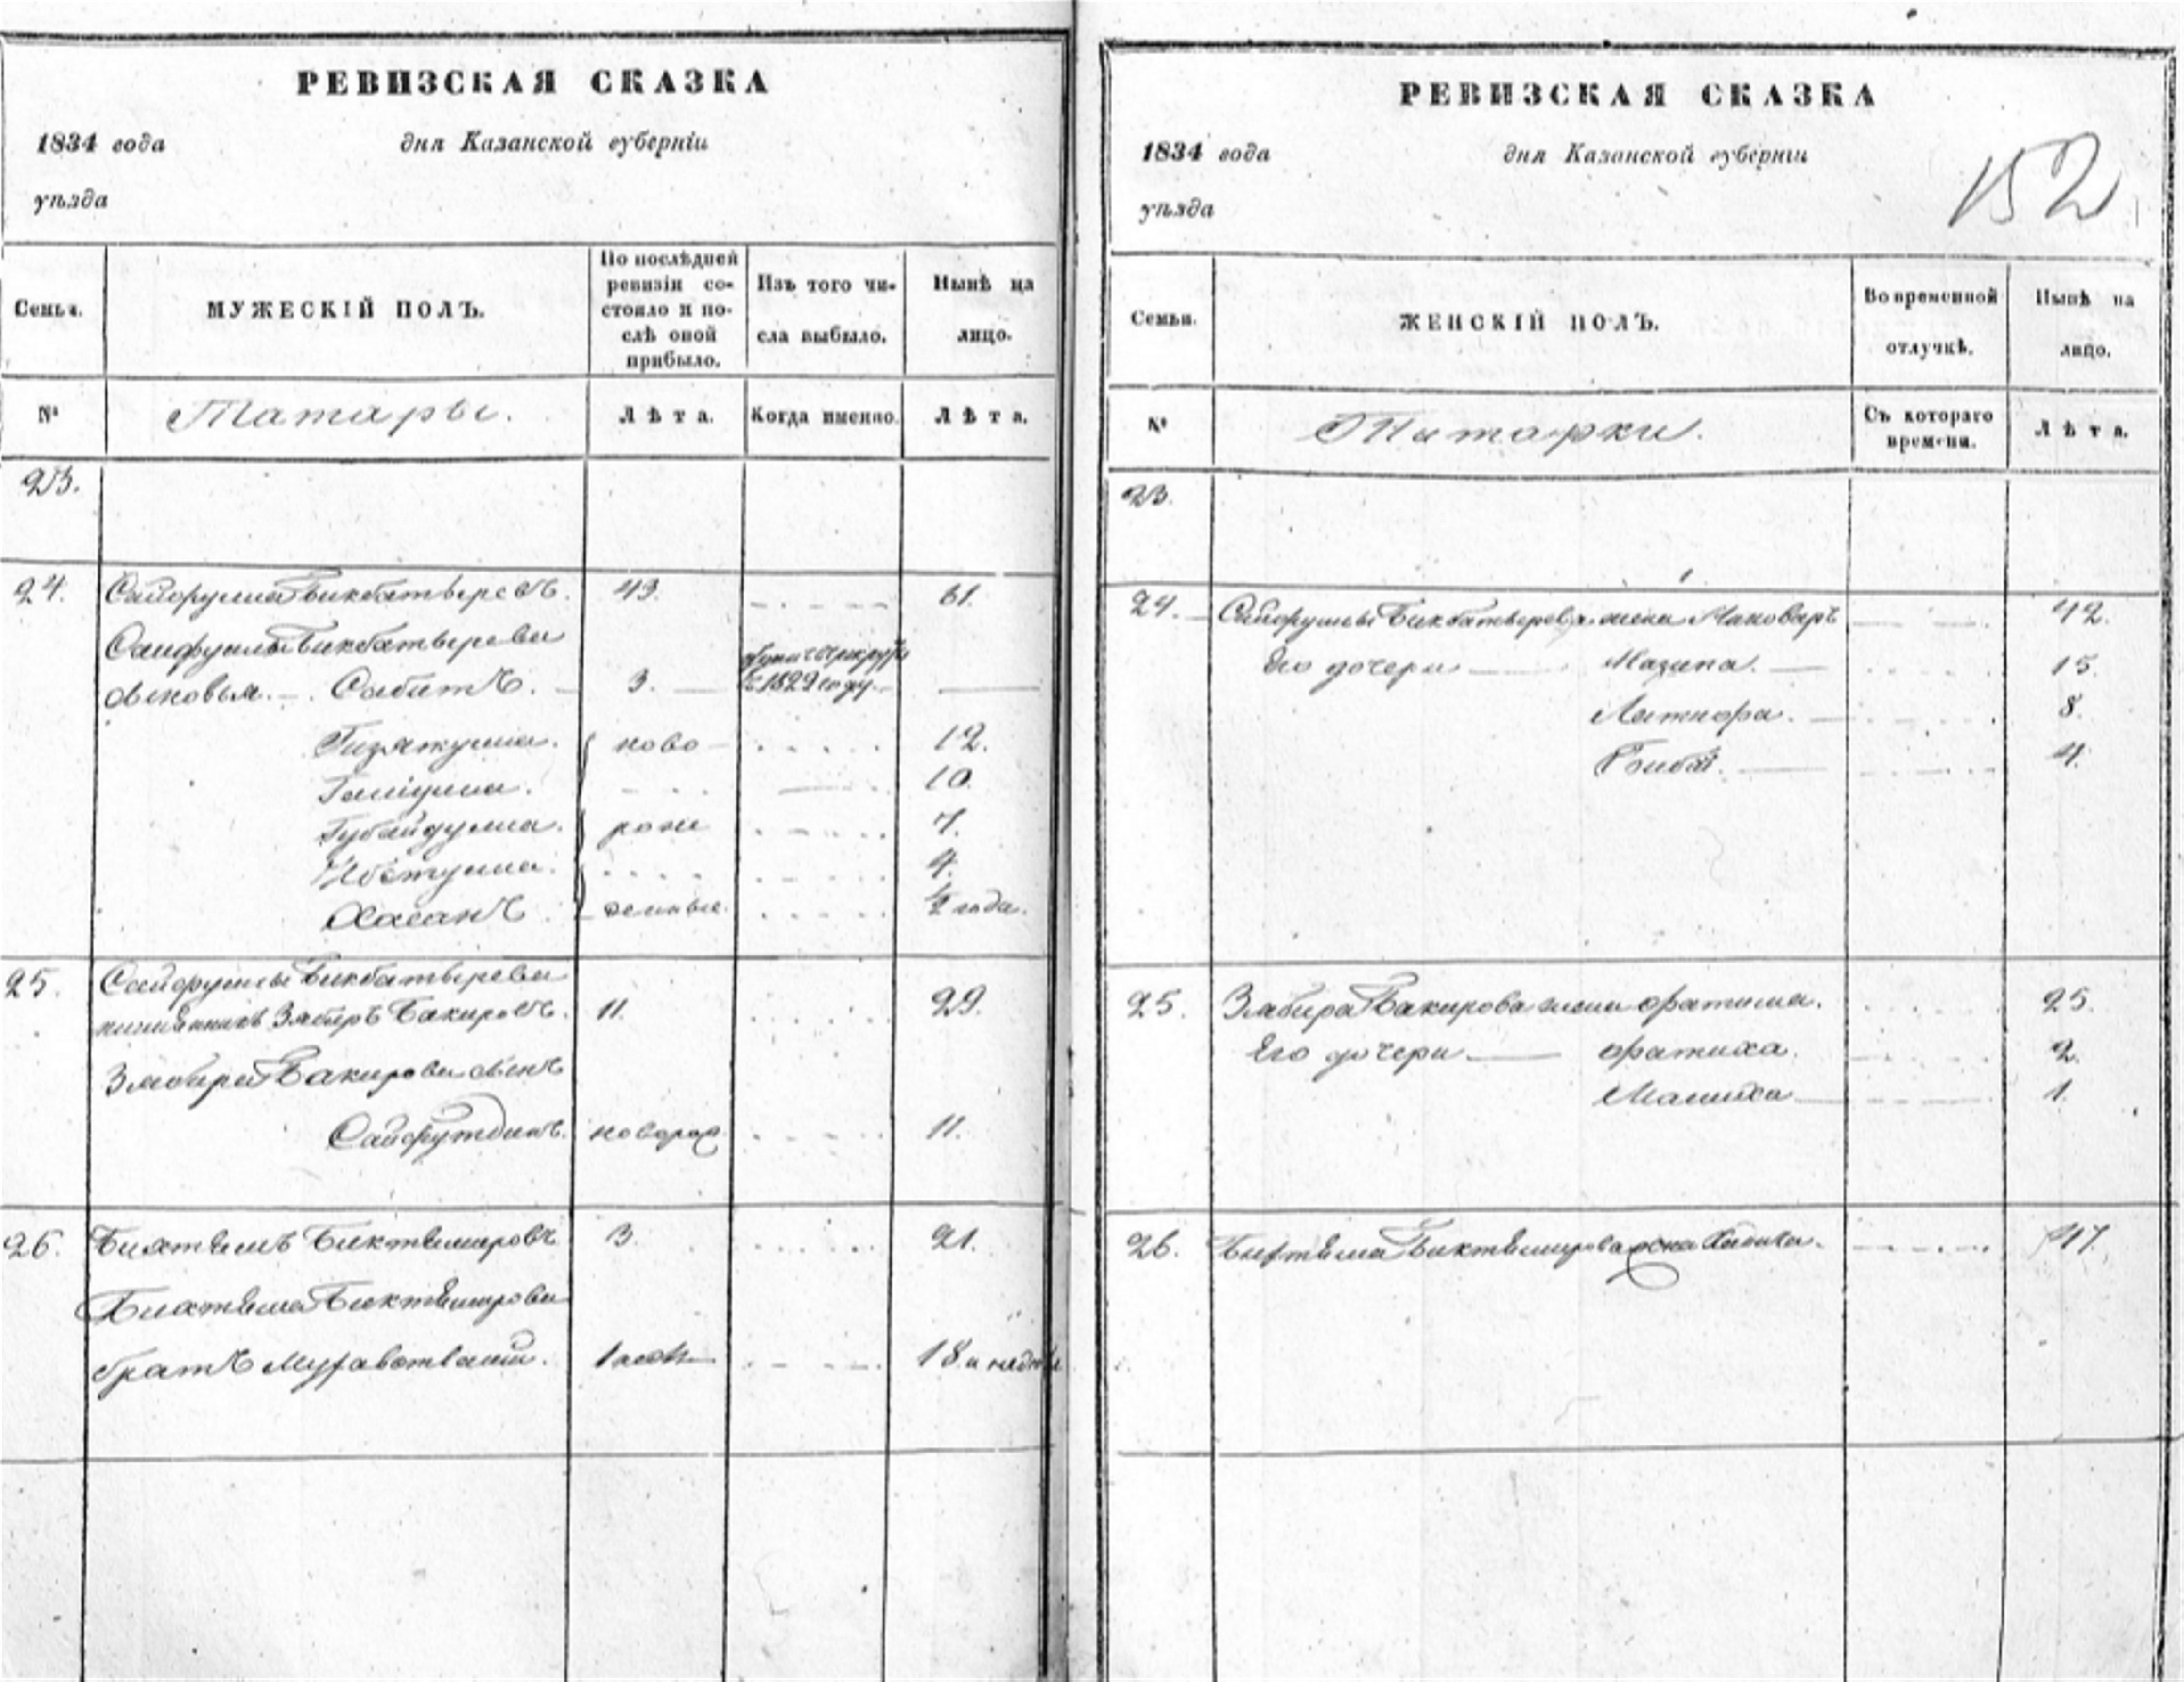 РЕВИЗСКАЯ СКАЗКА
1834 года дня Казанской губерніи
уѣзда
Семьи. МУЖЕСКІЙ ПОЛЪ. По послѣдней ревизіи состояло и послѣ оной прибыло. Изъ того числа выбыло. Нынѣ на лицо.
№ Татары. Лѣта. Когда именно. Лѣта.
23.
24. Сайфулла Бикбатыревъ. 43. 61.
Сайфуллы Бикбатырева
сыновья. Сабитъ. 3. въ 1829 году.
Гизятулла. ново 12.
Галіулла. 10.
Губайдулла. рож 7.
4.
Хасанъ денные. ½ года.
25. Сайфуллы Бикбатырева
Забиръ Бакировъ. 11. 29.
Забира Бакирова сынъ
Сайфутдинъ. новорож 11.
26. Биктемировъ 3. 21.
Биктемирова
братъ 18 и недель
РЕВИЗСКАЯ СКАЗКА
1834 года дня Казанской губерніи
152
уѣзда
Семьи. ЖЕНСКІЙ ПОЛЪ. Во временной отлучкѣ. Нынѣ на лицо.
№ Татарки. Съ котораго времени. Лѣта.
23.
24. Сайфуллы Бикбатырева жена 42.
Его дочери Мазипа. 15.
8.
4.
25. Забира Бакирова жена Фатима. 25.
Его дочери Фатиха. 2.
Малиха 1.
26. Биктемирова жена 17.